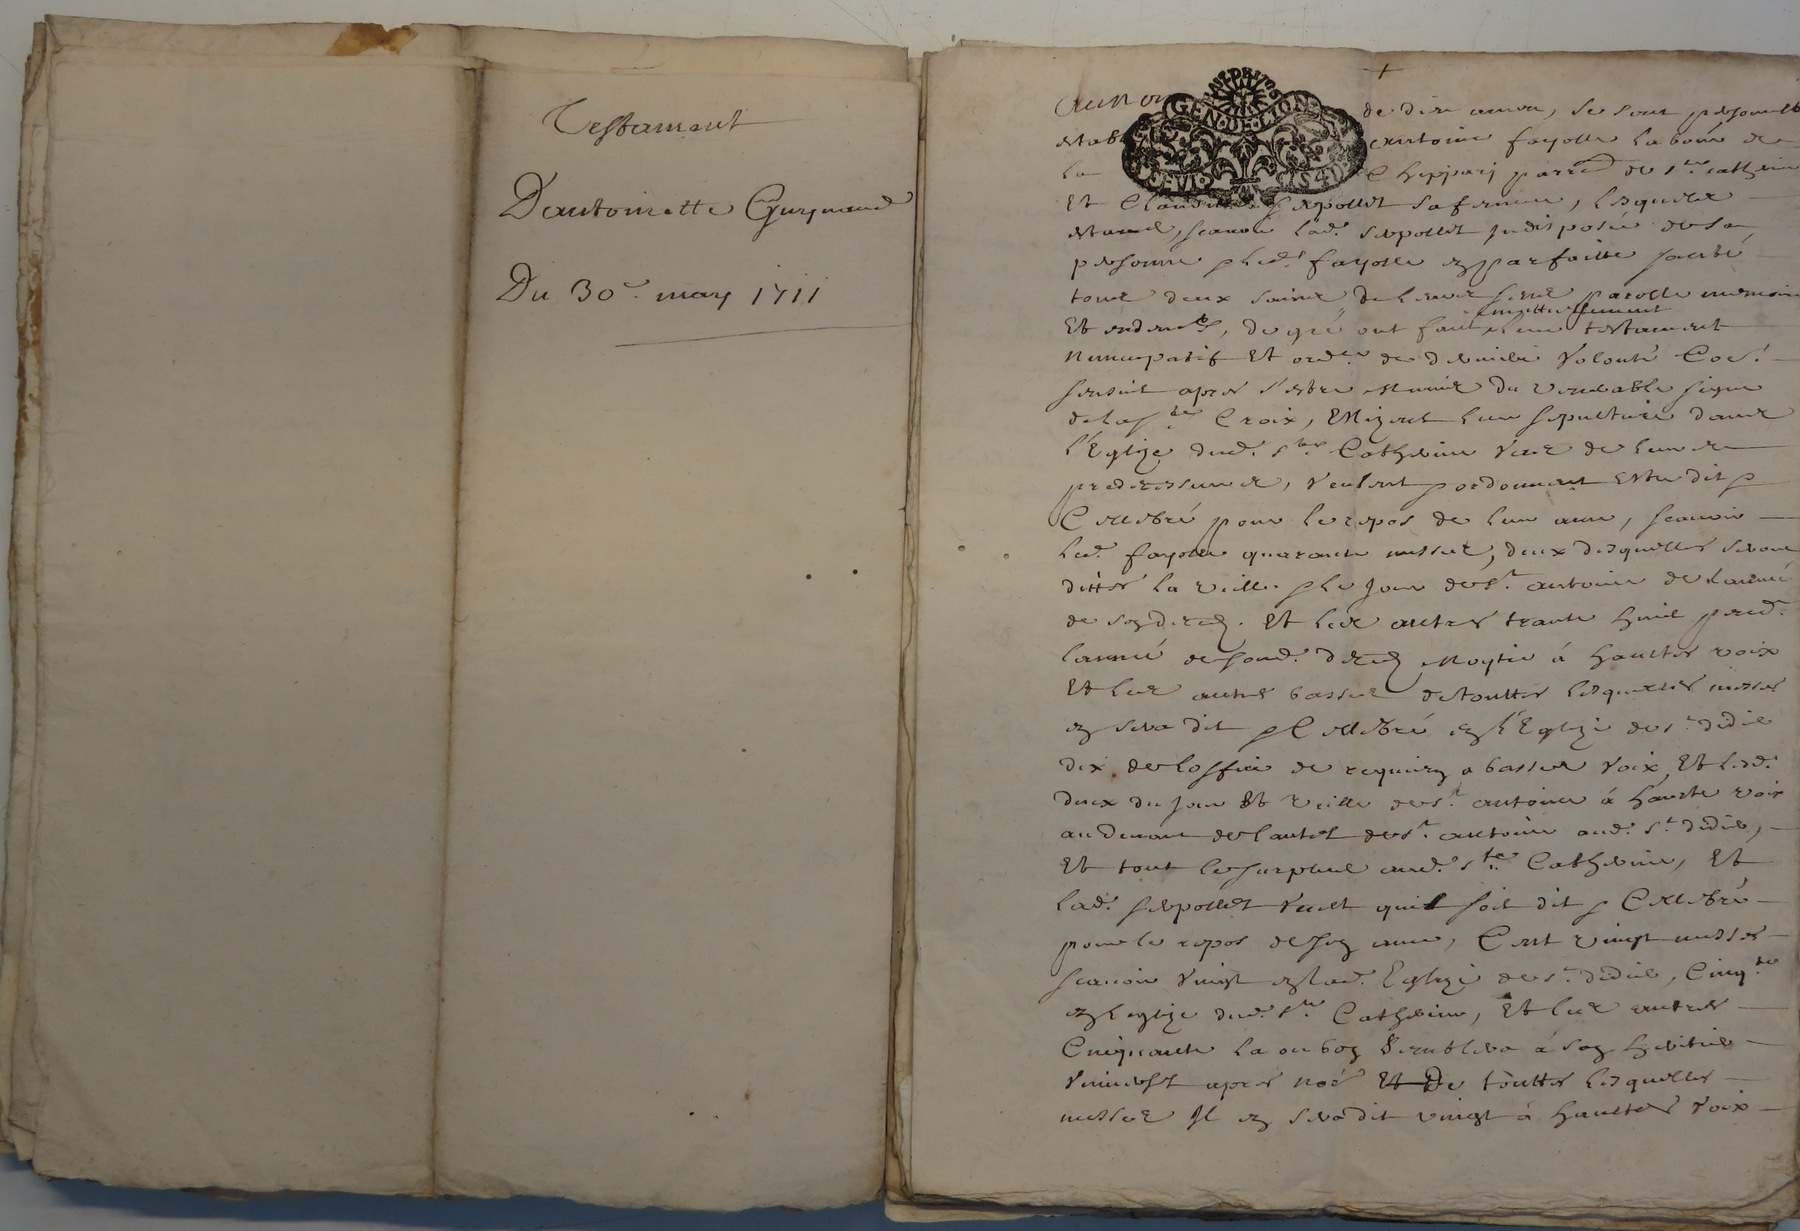 Testament
D'antoinette Guignaud
Du 30e. may 1711
GEN·DE·LION
Au Nom de dieu amen, se sont personnellt
establ antoine fayolle laboure de
la Chippary parre de ste. catherine
Et Claudine sepollet sa femme, lesquels
estant, scavoir lad. sepollet indisposée de sa
personne & led. fayolle en parfaitte santé
tous deux sains de leurs sens parolle memoire
Et endemts, de gré ont fait leur testament
mutuellement
Nuncupatif Et ordce de derniere Volonté Coe
sensuit apres s'estre munis du venerable signe
de la ste Croix, Ellizent leur sepulture dans
l'Eglize dud. ste Catherine Vas de leurs
predecesseurs, veulent & ordonnent Estre dit &
Cellebré pour le repos de leur ame, scavoir
led. fayolle quarante messes, deux desquelles seront
dittes la veille & le jour de st. antoine de lannée
de son deceds. Et les autres trante huit pend.
lannée de sond. deceds Moytié à haultes voix
Et les autres basses de touttes lesquelles messes
en sera dit & Cellebré en l'Eglize de st didier
dix de loffice de requiem a basses voix, Et lesd.
deux du jour Et veille de st. antoine à haute voix
au devant de lautel de st. antoine aud. st. didier,
Et tout le surplus aud. ste Catherine, Et
lad. sepollet veult quil soit dit & Cellebré
pour le repos de son ame, Cent vingt messes
scavoir vingt en lad. Eglize de st. didier, Cinqte
en leglize dud. ste. Catherine, Et les autres
Cinquante la ou bon semblera à son heritier
universel apres noé Et De touttes lesquelles
messes Il en sera dit vingt à haultes voix